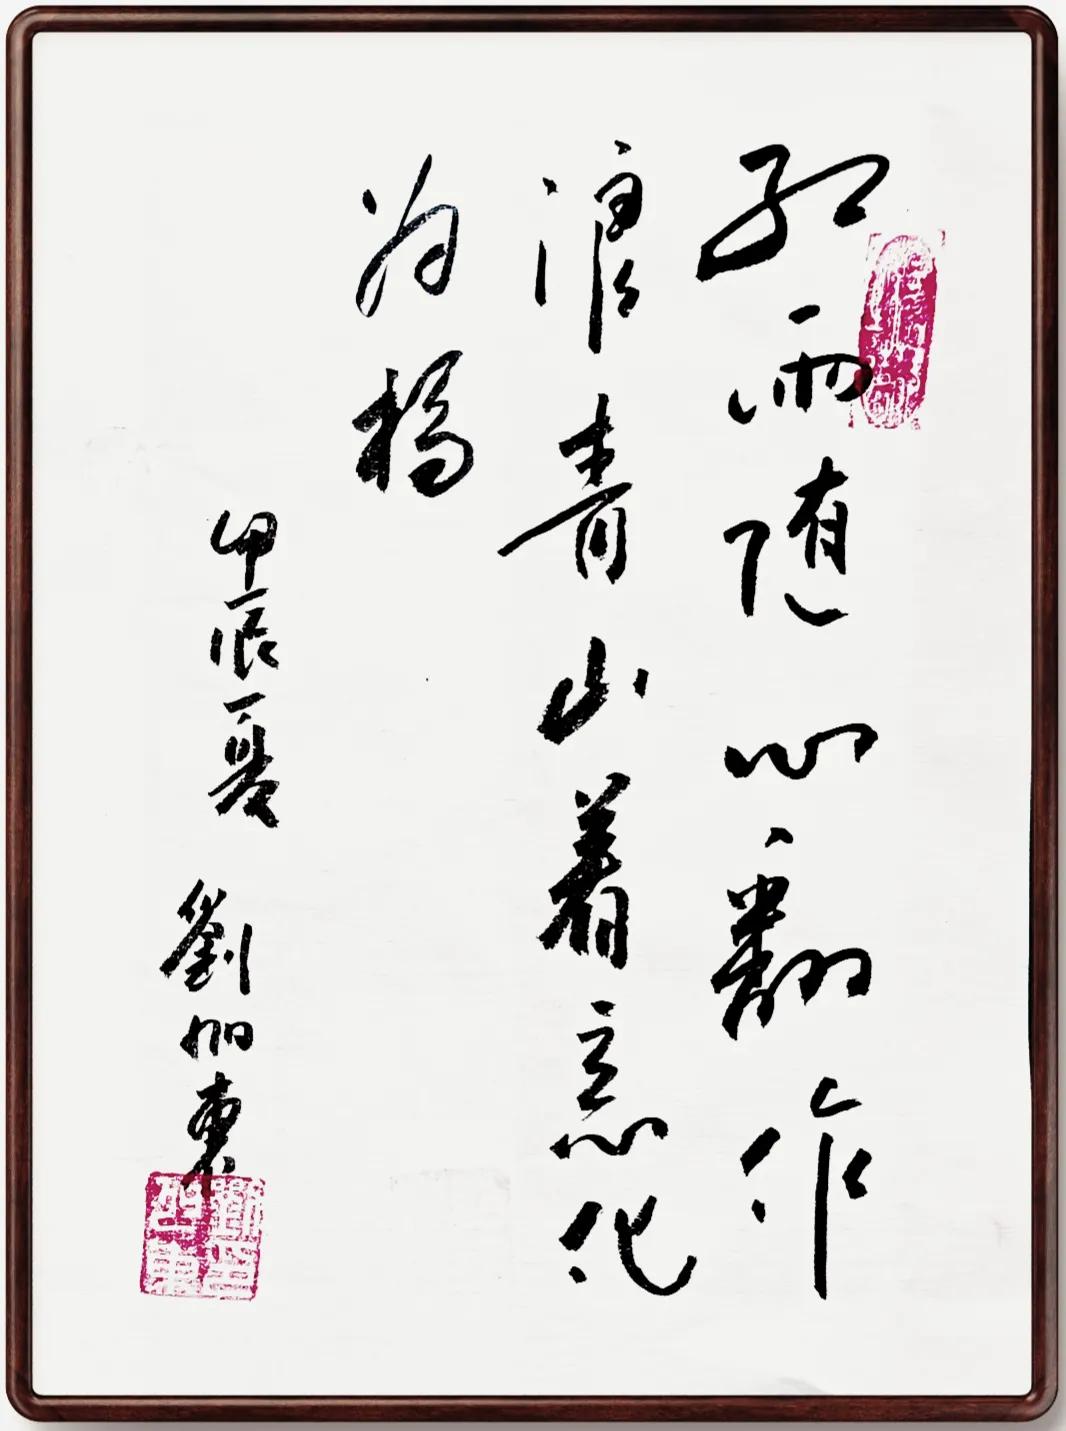 红雨随心翻作
浪青山着意化
为桥
甲辰夏 劉加東